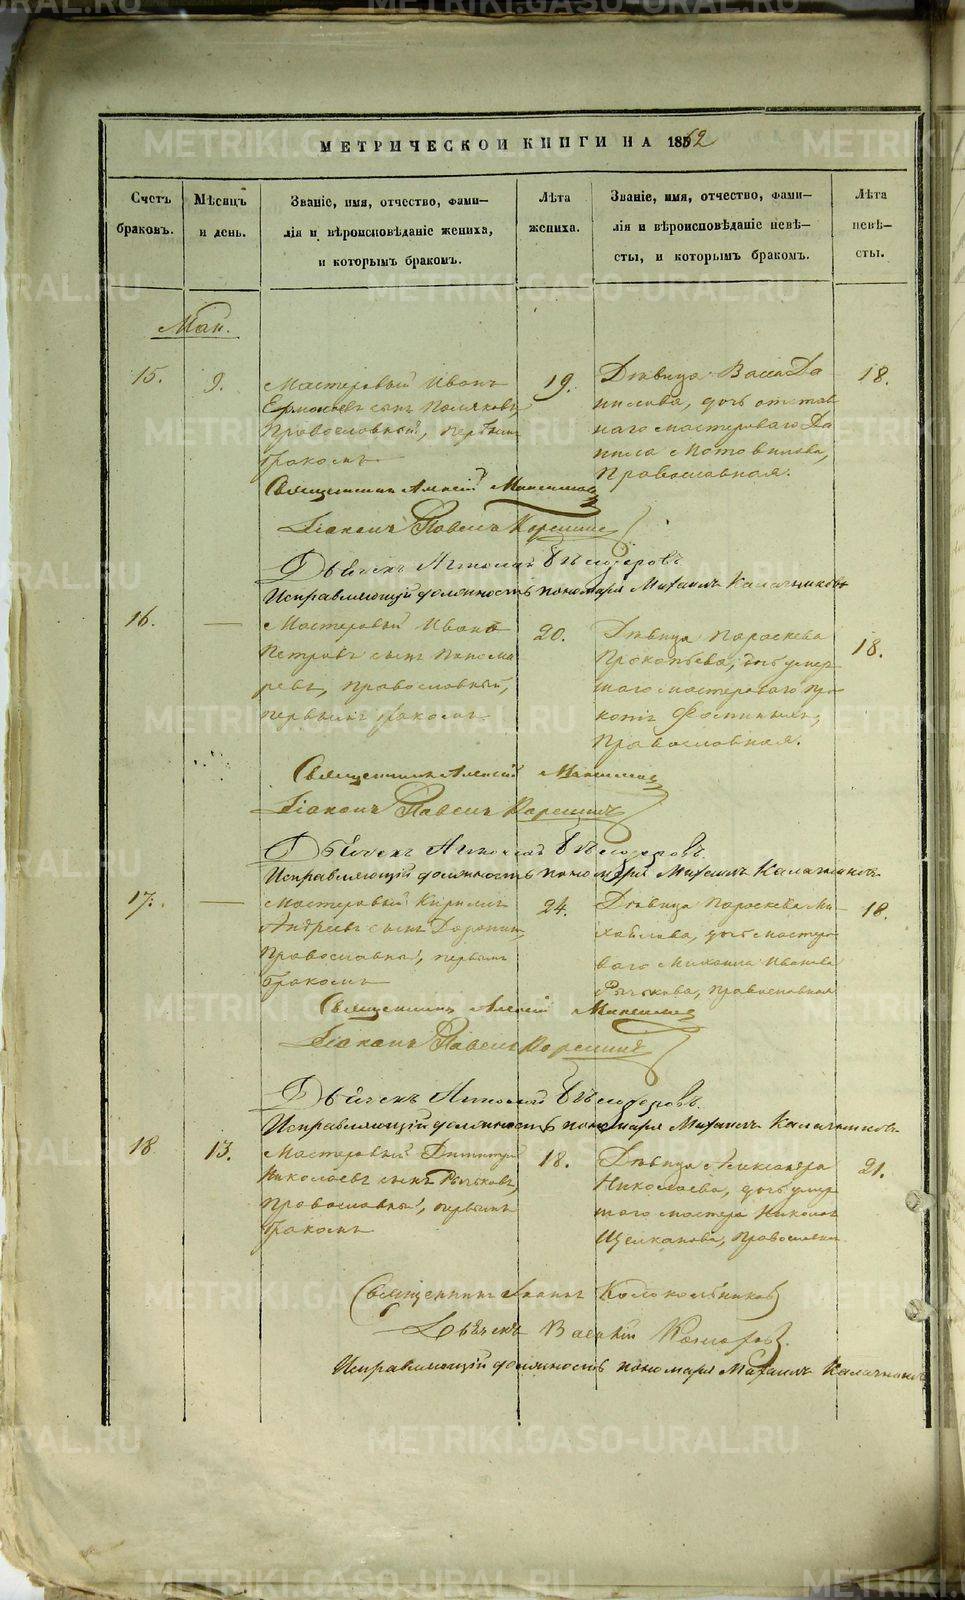 МЕТРИЧЕСКОЙ КНИГИ НА 1862
Счетъ браковъ.
Мѣсяцъ и день.
Званіе, имя, отчество, фами-
лія и вѣроисповѣданіе жениха,
и которымъ бракомъ.
Лѣта жениха.
Званіе, имя, отчество, фами-
лія и вѣроисповѣданіе невѣ-
сты, и которымъ бракомъ.
Лѣта невѣ-
сты.
Маи.
15.
9.
Мастеровый Иванъ
Ермолаевъ сынъ Поляковъ,
Православный, первымъ
бракомъ
19.
Дѣвица Васса Да
нилова, дочь отстав
наго мастероваго Да
нила Мотовилова,
Православная.
18.
Священникъ Алексій
Діаконъ Павелъ
Дьячекъ Аполлосъ
Исправляющій должность пономаря Михаилъ Калачниковъ
16.
—
Мастеровый Иванъ
Петровъ сынъ Понома
ревъ, православный,
первымъ бракомъ
20.
Дѣвица Параскева
Прокопьева, дочь умер
шаго мастероваго Про
копія
Православная.
18.
Священникъ Алексій
Діаконъ Павелъ
Дьячекъ
Исправляющій должность пономаря Михаилъ Калачниковъ
17.
—
Мастеровый Кирилъ
Андреевъ сынъ Доронинъ,
Православный, первымъ
бракомъ
24.
Дѣвица Параскева Ми-
хайлова, дочь мастеро-
ваго Михаила Иванова
Рычкова, православная
18.
Священникъ Алексій
Діаконъ Павелъ
Дьячекъ
Исправляющій должность пономаря Михаилъ Калачниковъ
18
13.
Мастеровый Димитрій
Николаевъ сынъ Рычковъ,
Православный, первымъ
бракомъ
18.
Дѣвица Александра
Николаева, дочь умер
шаго мастера Николая
Щелканова, Православная
21.
Священникъ Іоаннъ Колокольниковъ
Дьячекъ Василій Комаровъ.
Исправляющій должность пономаря Михаилъ Калачниковъ
METRIKI.GASO-URAL.RU